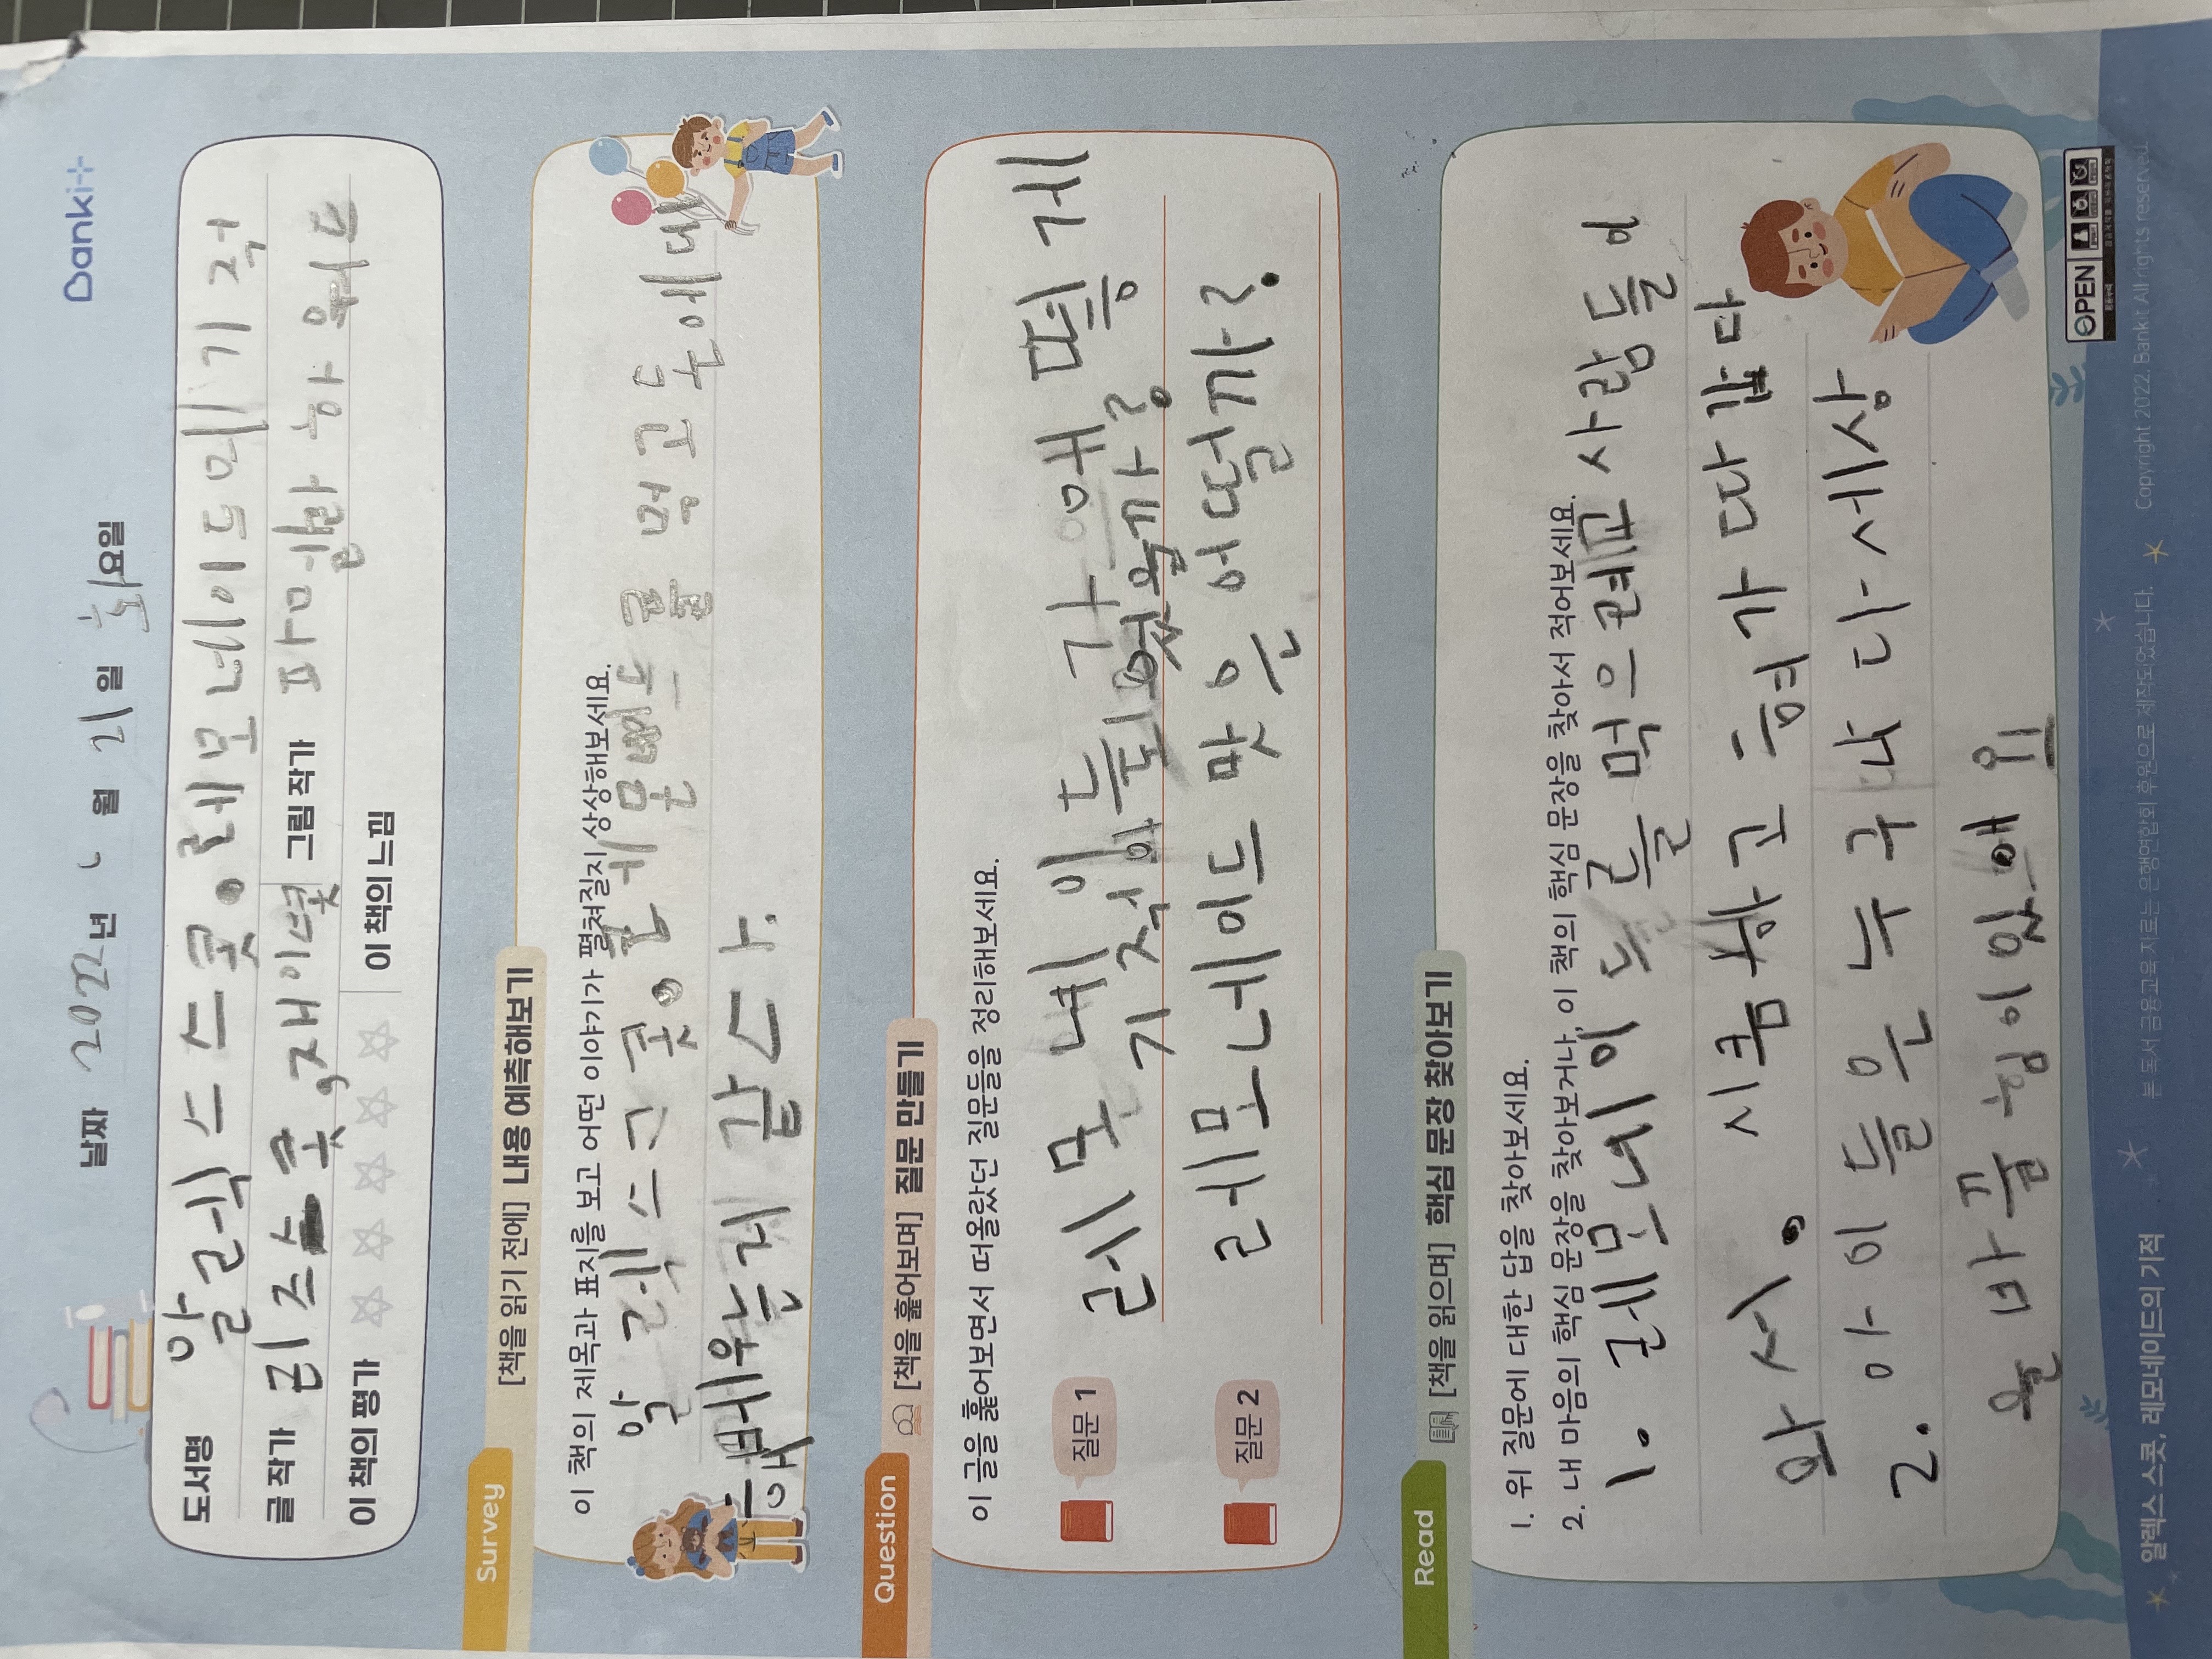 Bankit
날짜 2022년 6월 21일 화요일
도서명 알렉스 스콧. 레모네이드의 기적
글 작가 리즈 스콧, 제이 스콧 그림 작가 파멜라 하워드
이 책의 평가 ☆☆☆☆☆ 이 책의 느낌
Survey [책을 읽기 전에] 내용 예측해보기
이 책의 제목과 표지를 보고 어떤 이야기가 펼쳐질지 상상해보세요.
알렉스 스콧. 를 먹고 돈에대
해 배우는게 같
Question [책을 훑어보며] 질문 만들기
이 글을 훑어보면서 떠올랐던 질문들을 정리해보세요.
질문 1 레모네이드가 왜 떻게
기적이 되었을까?
질문 2 레모네이드 맛은 어떨까?
Read [책을 읽으며] 핵심 문장 찾아보기
1. 위 질문에 대한 답을 찾아보세요.
2. 내 마음의 핵심 문장을 찾아보거나, 이 책의 핵심 문장을 찾아서 적어보세요.
1. 레모네이드를 먹으려고 사람들이
와서. 시큼하고 혀가 따갑다
2. 아이들은 누구나 다 세상
을 바꿀 힘이 있애요
OPEN
알렉스 스콧, 레모네이드의 기적
본 독서 금융교육 자료는 은행연합회 후원으로 제작되었습니다.
Copyright 2022. Bankit All rights reserved.